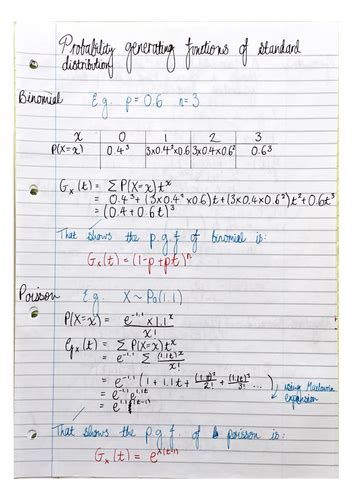 Probability generating functions of standard
distribution
Binomial E.g. p=0.6 n=3
x 0 1 2 3
P(X=x) 0.4³ 3×0.4²×0.6 3×0.4×0.6² 0.6³
Gₓ(t) = ΣP(X=x)tˣ
= 0.4³ + (3×0.4²×0.6)t + (3×0.4×0.6²)t² + 0.6t³
= (0.4+0.6t)³
That shows the p.g.f of binomial is:
Gₓ(t) = (1-p+pt)ⁿ
Poisson E.g. X~Po(1.1)
P(X=x) = e^-1.1 × 1.1ˣ / x!
Gₓ(t) = ΣP(X=x)tˣ
= e^-1.1 Σ (1.1t)ˣ / x!
= e^-1.1 (1 + 1.1t + (1.1t)²/2! + (1.1t)³/3! ...) using Maclaurin
expansion
= e^-1.1 e^1.1t
= e^1.1(t-1)
That shows the p.g.f of poisson is:
Gₓ(t) = e^λ(t-1)